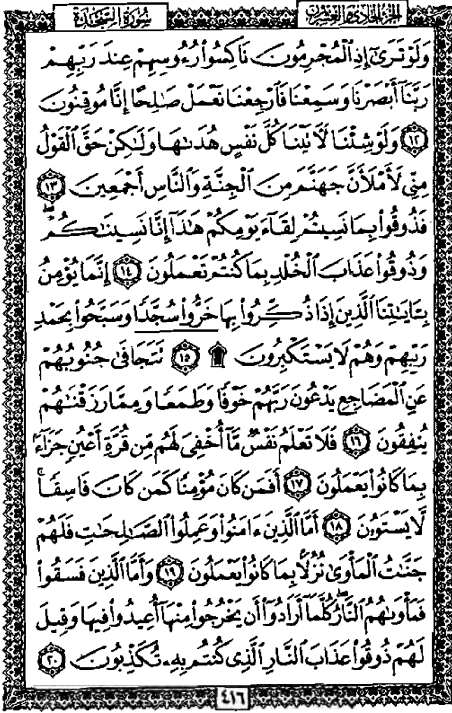 الجزء الحادي والعشرون سورة السجدة
وَلَوْ تَرَىٰٓ إِذِ ٱلْمُجْرِمُونَ نَاكِسُوا۟ رُءُوسِهِمْ عِندَ رَبِّهِمْ
رَبَّنَآ أَبْصَرْنَا وَسَمِعْنَا فَٱرْجِعْنَا نَعْمَلْ صَٰلِحًا إِنَّا مُوقِنُونَ
١٢ وَلَوْ شِئْنَا لَءَاتَيْنَا كُلَّ نَفْسٍ هُدَىٰهَا وَلَٰكِنْ حَقَّ ٱلْقَوْلُ
مِنِّى لَأَمْلَأَنَّ جَهَنَّمَ مِنَ ٱلْجِنَّةِ وَٱلنَّاسِ أَجْمَعِينَ ١٣
فَذُوقُوا۟ بِمَا نَسِيتُمْ لِقَآءَ يَوْمِكُمْ هَٰذَآ إِنَّا نَسِينَٰكُمْ ۖ
وَذُوقُوا۟ عَذَابَ ٱلْخُلْدِ بِمَا كُنتُمْ تَعْمَلُونَ ١٤ إِنَّمَا يُؤْمِنُ
بِـَٔايَٰتِنَا ٱلَّذِينَ إِذَا ذُكِّرُوا۟ بِهَا خَرُّوا۟ سُجَّدًا وَسَبَّحُوا۟ بِحَمْدِ
رَبِّهِمْ وَهُمْ لَا يَسْتَكْبِرُونَ ۩ ١٥ تَتَجَافَىٰ جُنُوبُهُمْ
عَنِ ٱلْمَضَاجِعِ يَدْعُونَ رَبَّهُمْ خَوْفًا وَطَمَعًا وَمِمَّا رَزَقْنَٰهُمْ
يُنفِقُونَ ١٦ فَلَا تَعْلَمُ نَفْسٌ مَّآ أُخْفِىَ لَهُم مِّن قُرَّةِ أَعْيُنٍ جَزَآءًۢ
بِمَا كَانُوا۟ يَعْمَلُونَ ١٧ أَفَمَن كَانَ مُؤْمِنًا كَمَن كَانَ فَاسِقًا ۚ
لَّا يَسْتَوُۥنَ ١٨ أَمَّا ٱلَّذِينَ ءَامَنُوا۟ وَعَمِلُوا۟ ٱلصَّٰلِحَٰتِ فَلَهُمْ
جَنَّٰتُ ٱلْمَأْوَىٰ نُزُلًۢا بِمَا كَانُوا۟ يَعْمَلُونَ ١٩ وَأَمَّا ٱلَّذِينَ فَسَقُوا۟
فَمَأْوَىٰهُمُ ٱلنَّارُ ۖ كُلَّمَآ أَرَادُوٓا۟ أَن يَخْرُجُوا۟ مِنْهَآ أُعِيدُوا۟ فِيهَا وَقِيلَ
لَهُمْ ذُوقُوا۟ عَذَابَ ٱلنَّارِ ٱلَّذِى كُنتُم بِهِۦ تُكَذِّبُونَ ٢٠
٤١٦